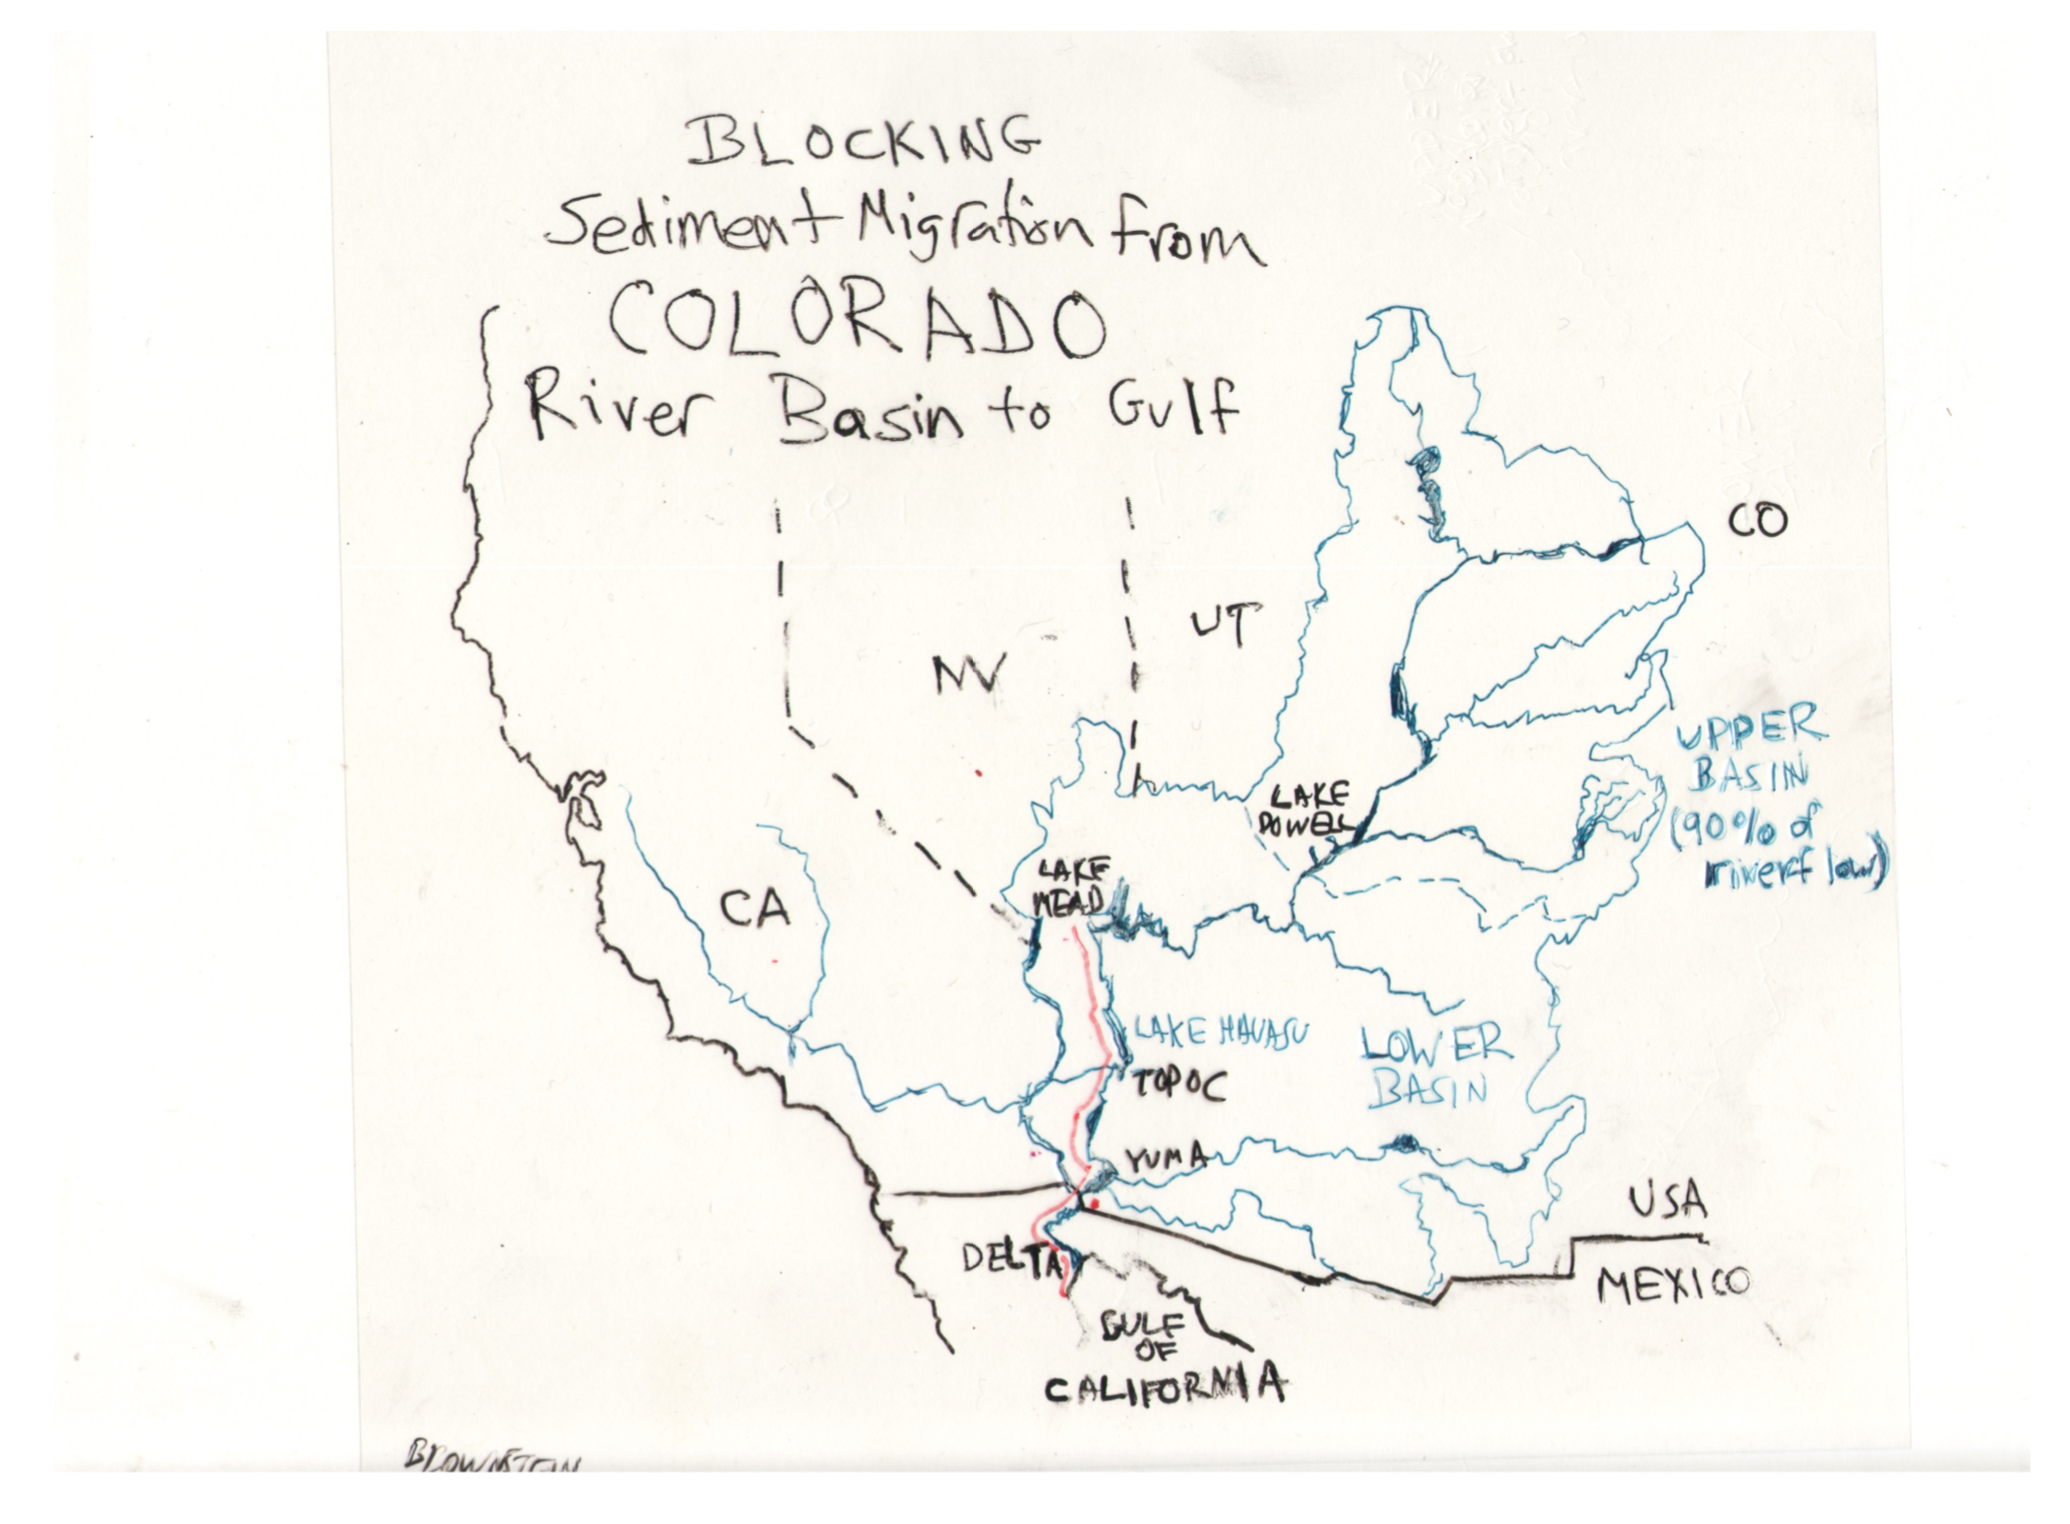 BLOCKING
Sediment Migration from
COLORADO
River Basin to Gulf
CO
UT
NV
UPPER
BASIN
(90% of
riverflow)
LAKE
POWELL
LAKE
MEAD
CA
LAKE HAVASU
TOPOC
LOWER
BASIN
YUMA
USA
MEXICO
DELTA
GULF
OF
CALIFORNIA
BROWNSTEIN